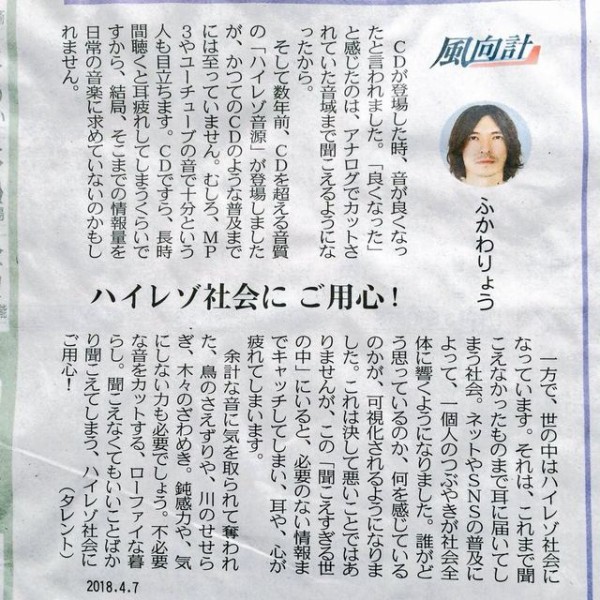 風向計
ふかわりょう
CDが登場した時、音が良くなっ
たと言われました。「良くなった」
と感じたのは、アナログでカットさ
れていた音域まで聞こえるようにな
ったから。
そして数年前、CDを超える音質
の「ハイレゾ音源」が登場しました
が、かつてのCDのような普及まで
には至っていません。むしろ、MP
3やユーチューブの音で十分という
人も目立ちます。CDですら、長時
間聴くと耳疲れしてしまうくらいで
すから、結局、そこまでの情報量を
日常の音楽に求めていないのかもし
れません。
ハイレゾ社会に ご用心!
一方で、世の中はハイレゾ社会に
なっています。それは、これまで聞
こえなかったものまで耳に届いてし
まう社会。ネットやSNSの普及に
よって、一個人のつぶやきが社会全
体に響くようになりました。誰がど
う思っているのか、何を感じている
のかが、可視化されるようになりま
した。これは決して悪いことではあ
りませんが、この「聞こえすぎる世
の中」にいると、必要のない情報ま
でキャッチしてしまい、耳や、心が
疲れてしまいます。
余計な音に気を取られて奪われ
た、鳥のさえずりや、川のせせら
ぎ、木々のざわめき。鈍感力や、気
にしない力も必要でしょう。不必要
な音をカットする、ローファイな暮
らし。聞こえなくてもいいことばか
り聞こえてしまう、ハイレゾ社会に
ご用心!
(タレント)
2018.4.7